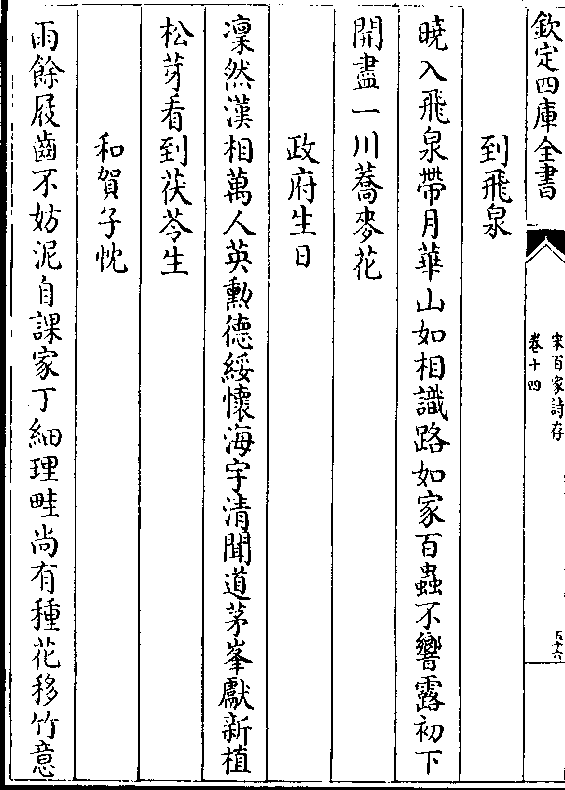 欽定四庫全書
宋百家詩存
卷十四
五十六
到飛泉
曉入飛泉帶月華山如相識路如家百蟲不響露初下
開盡一川蕎麥花
政府生日
凜然漢相萬人英勲德綏懷海宇清聞道茅峯獻新植
松芽看到茯苓生
和賀子忱
雨餘屐齒不妨泥自課家丁細理畦尚有種花移竹意